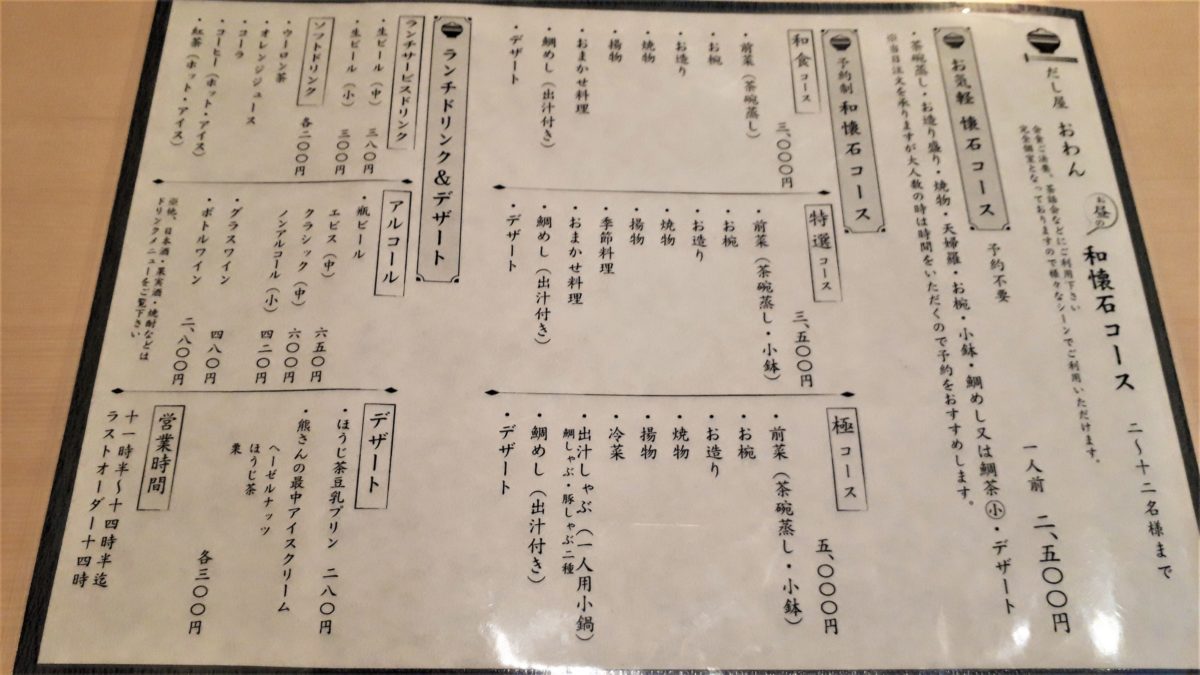 だし屋 おわん
お昼の
和懐石コース
二〜十二名様まで
会食ご法要、茶話会などにご利用下さい
完全個室となっておりますので様々なシーンでご利用いただけます。
お気軽 懐石コース
予約不要
一人前 二、五〇〇円
・茶碗蒸し・お造り盛り・焼物・天婦羅・お椀・小鉢・鯛めし又は鯛茶小・デザート
※当日注文を承りますが大人数の時は時間をいただくので予約をおすすめします。
予約制 和懐石コース
和食コース
三、〇〇〇円
・前菜（茶碗蒸し）
・お椀
・お造り
・焼物
・揚物
・おまかせ料理
・鯛めし（出汁付き）
・デザート
特選コース
三、五〇〇円
・前菜（茶碗蒸し・小鉢）
・お椀
・お造り
・焼物
・揚物
・季節料理
・おまかせ料理
・鯛めし（出汁付き）
・デザート
極コース
五、〇〇〇円
・前菜（茶碗蒸し・小鉢）
・お椀
・お造り
・焼物
・揚物
・冷菜
・出汁しゃぶ（一人用小鍋）
鯛しゃぶ・豚しゃぶ二種
・鯛めし（出汁付き）
・デザート
ランチドリンク＆デザート
ランチサービスドリンク
・生ビール（中） 三八〇円
・生ビール（小） 三〇〇円
ソフトドリンク
各二〇〇円
・ウーロン茶
・オレンジジュース
・コーラ
・コーヒー（ホット・アイス）
・紅茶（ホット・アイス）
アルコール
・瓶ビール
エビス（中） 六五〇円
クラシック（中） 六〇〇円
ノンアルコール（小） 四二〇円
・グラスワイン 四八〇円
・ボトルワイン 二、八〇〇円
※他、日本酒・果実酒・焼酎などは
ドリンクメニューをご覧下さい
デザート
・ほうじ茶豆乳プリン 二八〇円
・熊さんの最中アイスクリーム
ヘーゼルナッツ
ほうじ茶
栗
各三〇〇円
営業時間
十一時半〜十四時半迄
ラストオーダー十四時